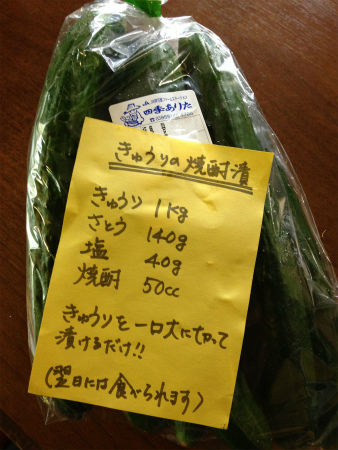 四季ありた
きゅうりの焼酎漬
きゅうり 1kg
さとう 140g
塩 40g
焼酎 50cc
きゅうりを一口大に切って
漬けるだけ!!
(翌日には食べられます)